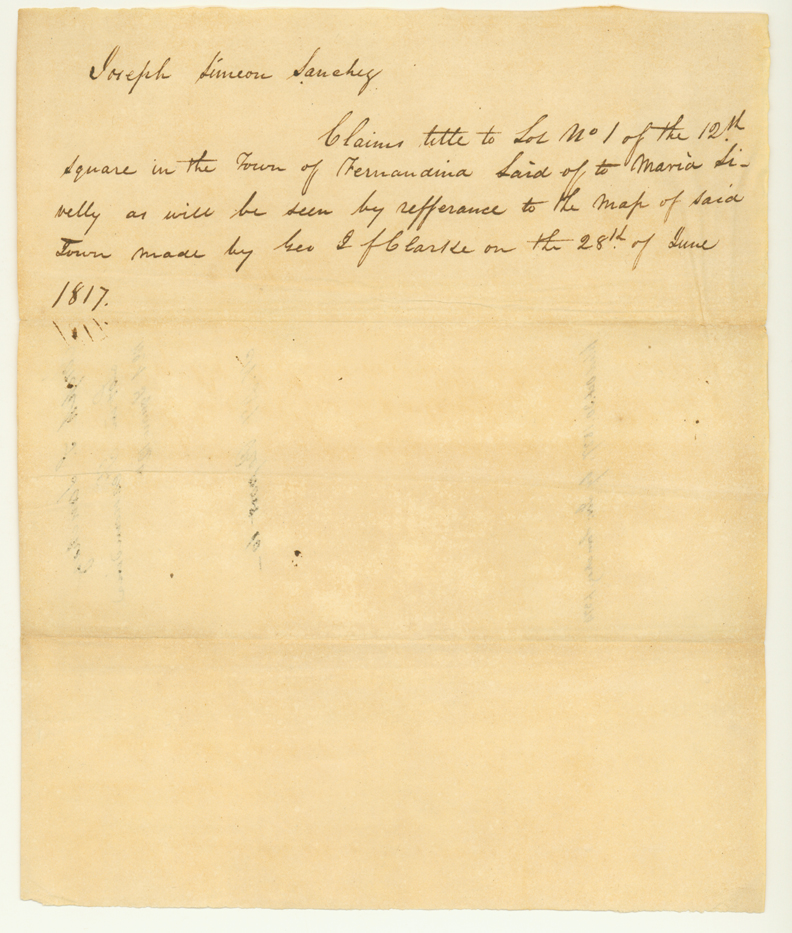 Joseph Simeon Sanchez
Claims title to Lot No 1 of the 12th
square in the Town of Fernandina Laid of to Maria Si-
velly as will be seen by refferance to the map of said
Town made by Geo I f Clarke on the 28th of June
1817.